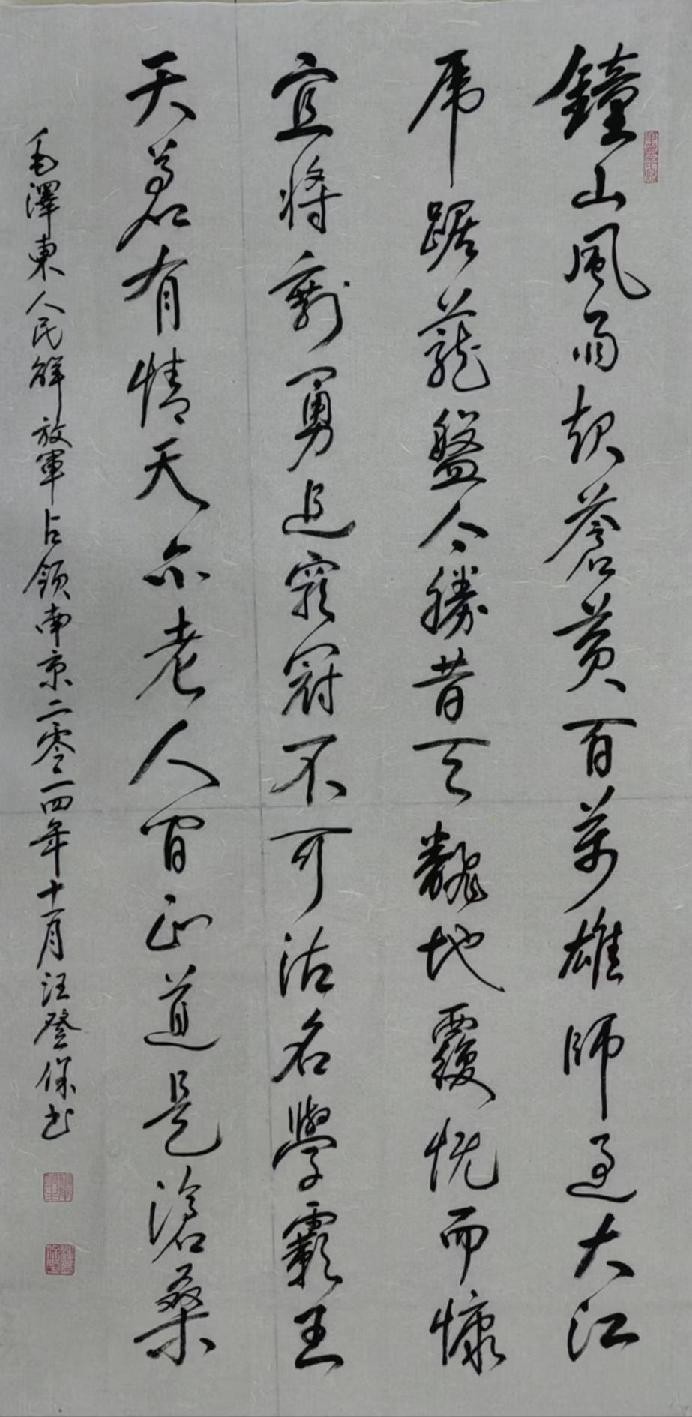 鐘山風雨起蒼黄百萬雄師过大江
虎踞龍盤今勝昔天翻地覆慨而慷
宜将剩勇追窮寇不可沽名學霸王
天若有情天亦老人間正道是滄桑
毛澤東人民解放軍占領南京二零一四年十一月汪登保书